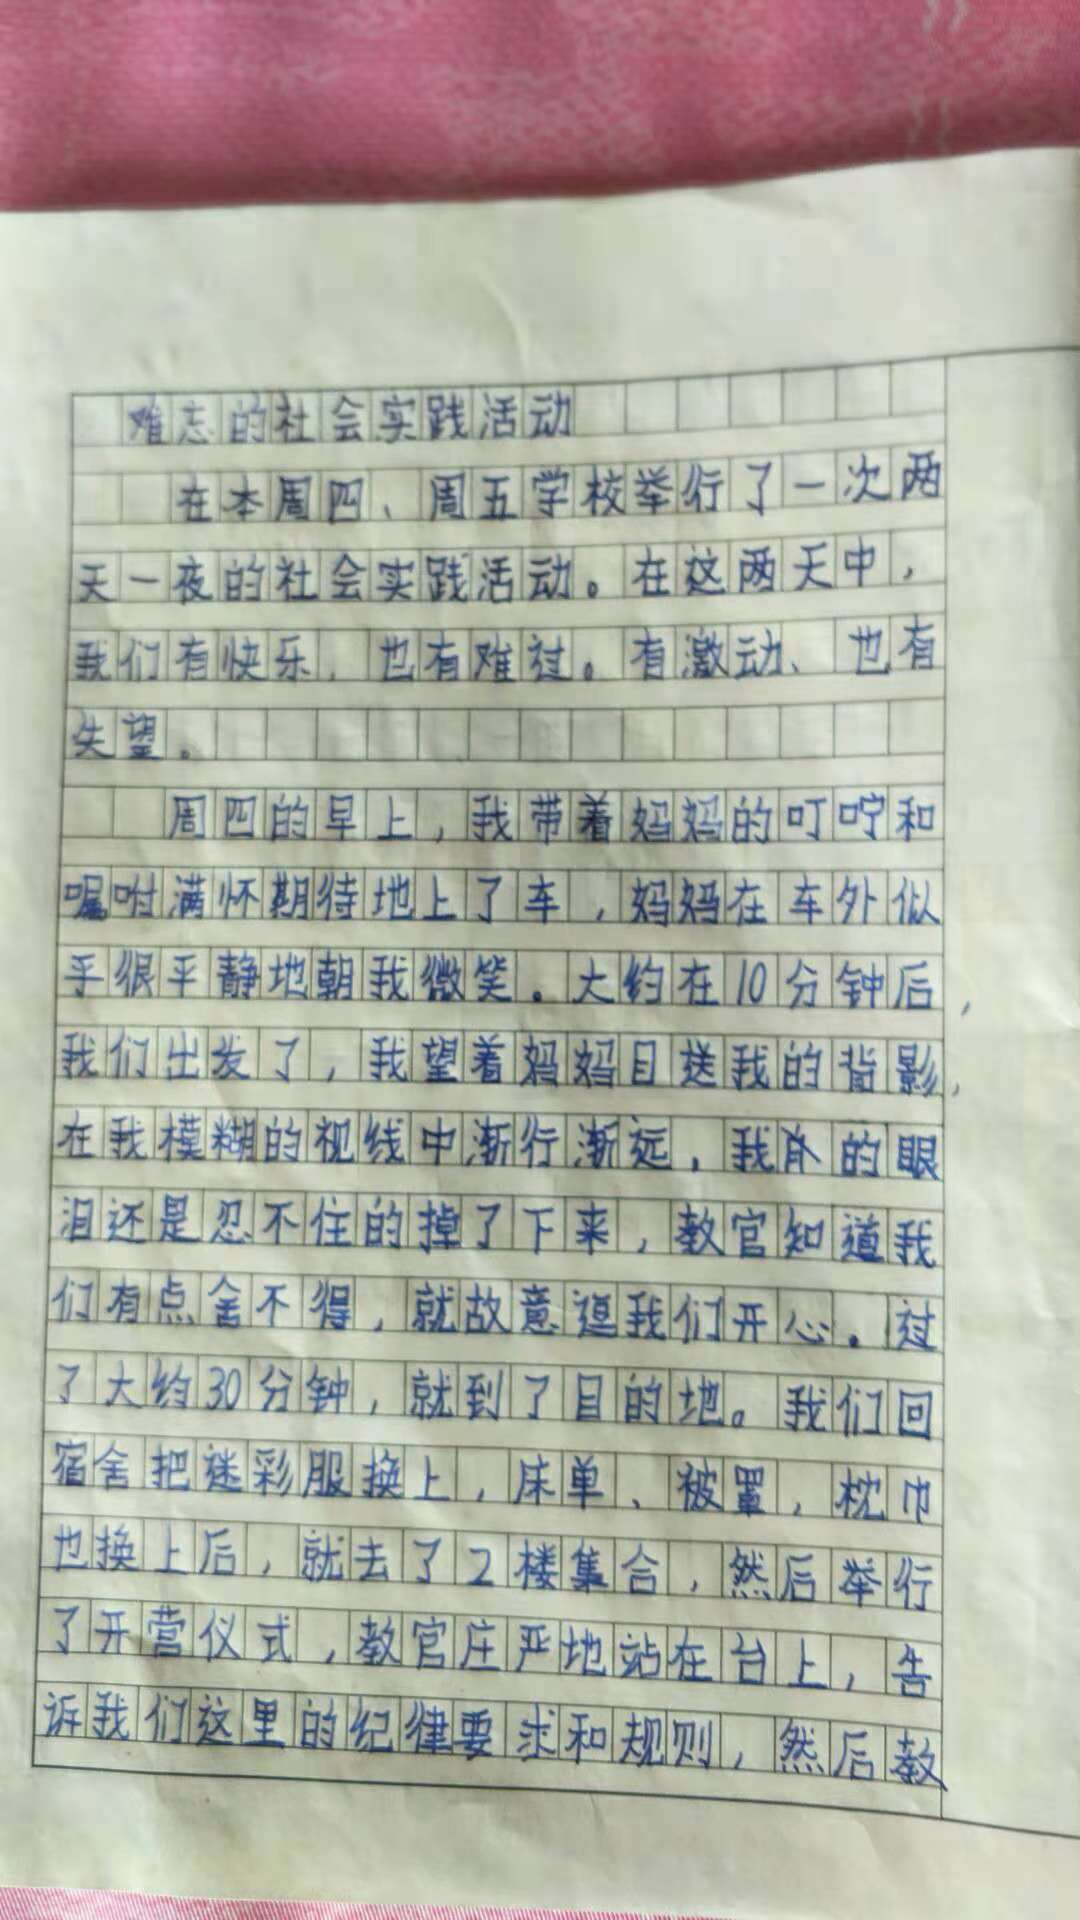 难忘的社会实践活动
在本周四、周五学校举行了一次两
天一夜的社会实践活动。在这两天中，
我们有快乐，也有难过。有激动、也有
失望。
周四的早上，我带着妈妈的叮咛和
嘱咐满怀期待地上了车，妈妈在车外似
乎很平静地朝我微笑。大约在10分钟后，
我们出发了，我望着妈妈目送我的背影，
在我模糊的视线中渐行渐远，我的眼
泪还是忍不住的掉了下来，教官知道我
们有点舍不得，就故意逗我们开心。过
了大约30分钟，就到了目的地。我们回
宿舍把迷彩服换上，床单、被罩，枕巾
也换上后，就去了2楼集合，然后举行
了开营仪式，教官庄严地站在台上，告
诉我们这里的纪律要求和规则，然后教